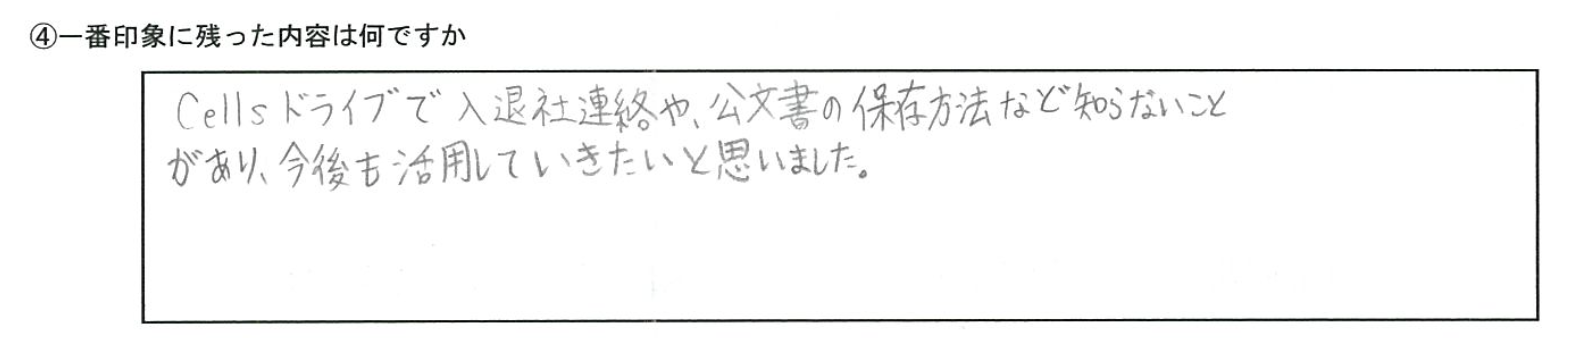 ④一番印象に残った内容は何ですか
Cellsドライブで入退社連絡や、公文書の保存方法など知らないこと
があり、今後も活用していきたいと思いました。